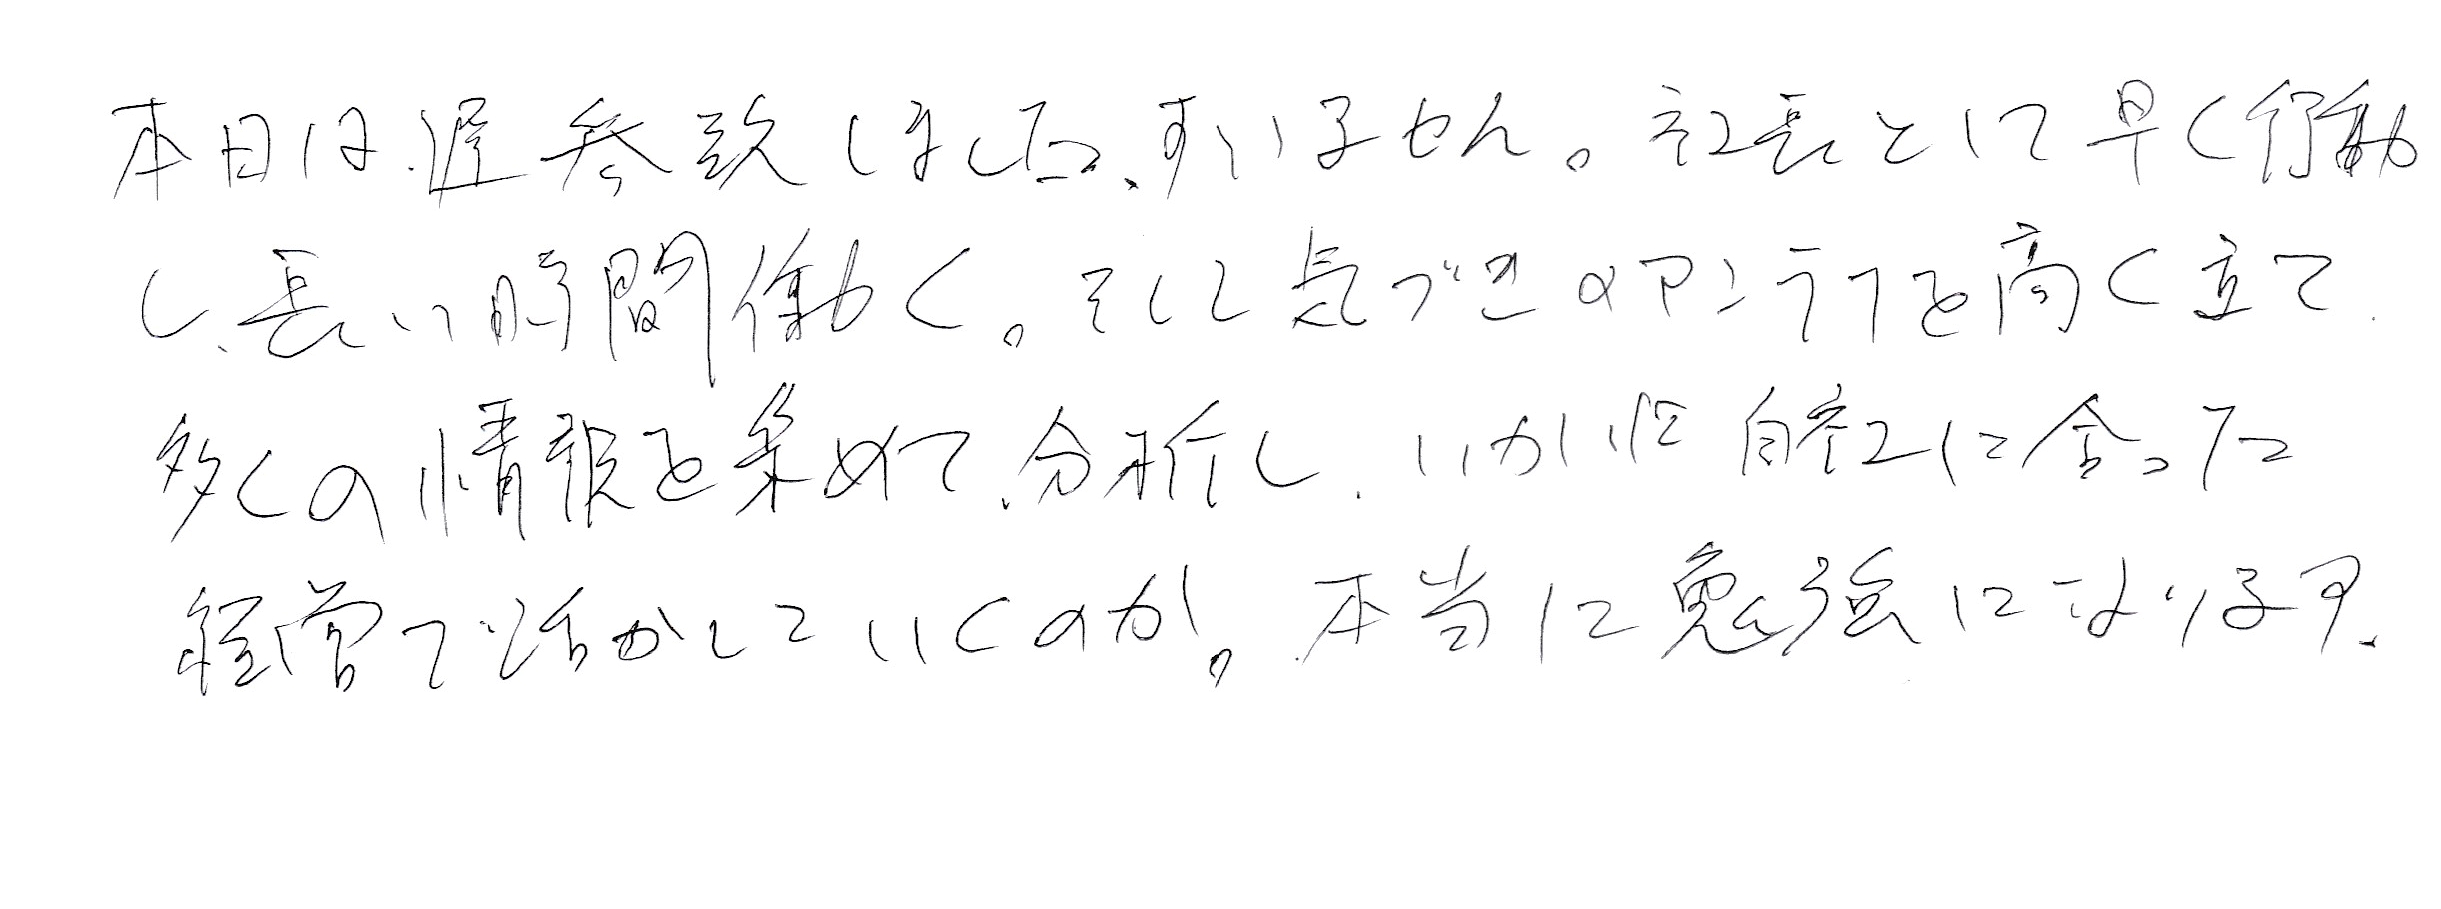 本日は、遅参致しました、すいません。社長として早く行動
し、長い時間働く。そして気づきのアンテナを高く立て
多くの情報を集めて、分析し、いかに自社に合った
経営で活かしていくのか。本当に勉強になります。